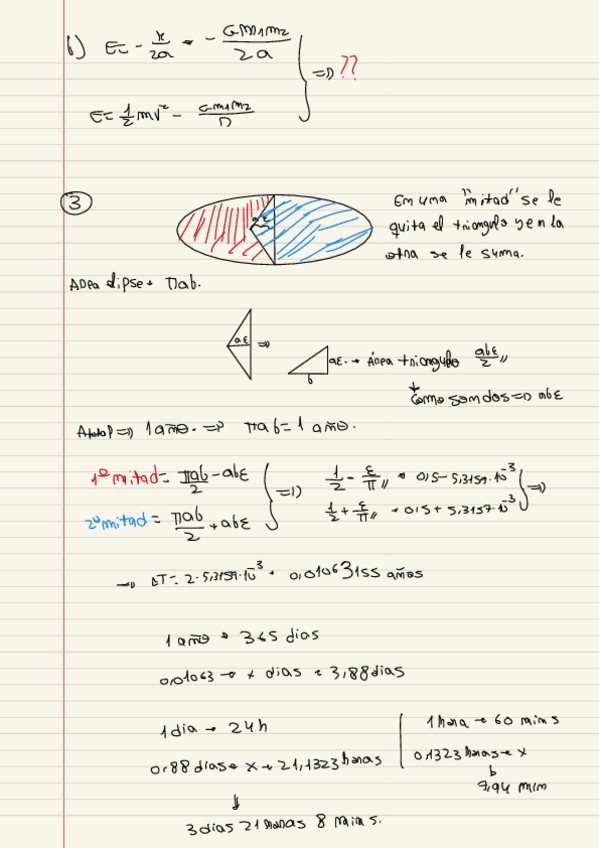 b) E = - k/2a = - Gm1m2/2a
=> ??
E = 1/2 mv² - Gm1m2/D
3
aε
En una "mitad" se le
quita el triangulo y en la
otra se le suma.
Area elipse = πab.
aε =>
aε. → Área triangulo abε/2 //
b
Como son dos => abε
Atotal => 1 año. => πab = 1 año.
1º mitad = πab/2 - abε
2º mitad = πab/2 + abε
=> 1/2 - ε/π // = 0,5 - 5,3157·10^-3
1/2 + ε/π // = 0,5 + 5,3157·10^-3 =>
→ ΔT = 2·5,3157·10^-3 = 0,0106315 años
1 año = 365 dias
0,01063 → x dias = 3,88 dias
1 dia → 24h
0,88 dias → x = 21,1323 horas
1 hora → 60 mins
0,1323 horas → x
9,94 min
3 dias 21 horas 8 mins.